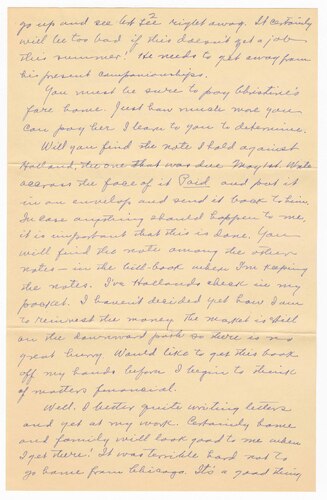 2
go up and see right away. It certainly
will be too bad if this doesn't get a job
this summer! He needs to get away from
his present companionships.
You must be sure to pay Christine's
fare home. Just how much more you
can pay her I leave to you to determine.
Will you find the note I hold against
Holland, the one that was due May 1st. Write
accross the face of it Paid and put it
in an envelop and send it back to him.
In case anything should happen to me,
it is important that this is done. You
will find the note among the other
notes - in the bill-book where I'm keeping
the notes. I've Hollands check in my
pocket. I havent decided yet how I am
to reinvest the money. The market is still
on the downward path so there is no
great hurry. Would like to get this book
off my hands before I begin to think
of matters financial.
Well, I better quite writing letters
and get at my work. Certainly home
and family will look good to me when
I get there! It was terrible hard not to
go home from Chicago. It's a good thing